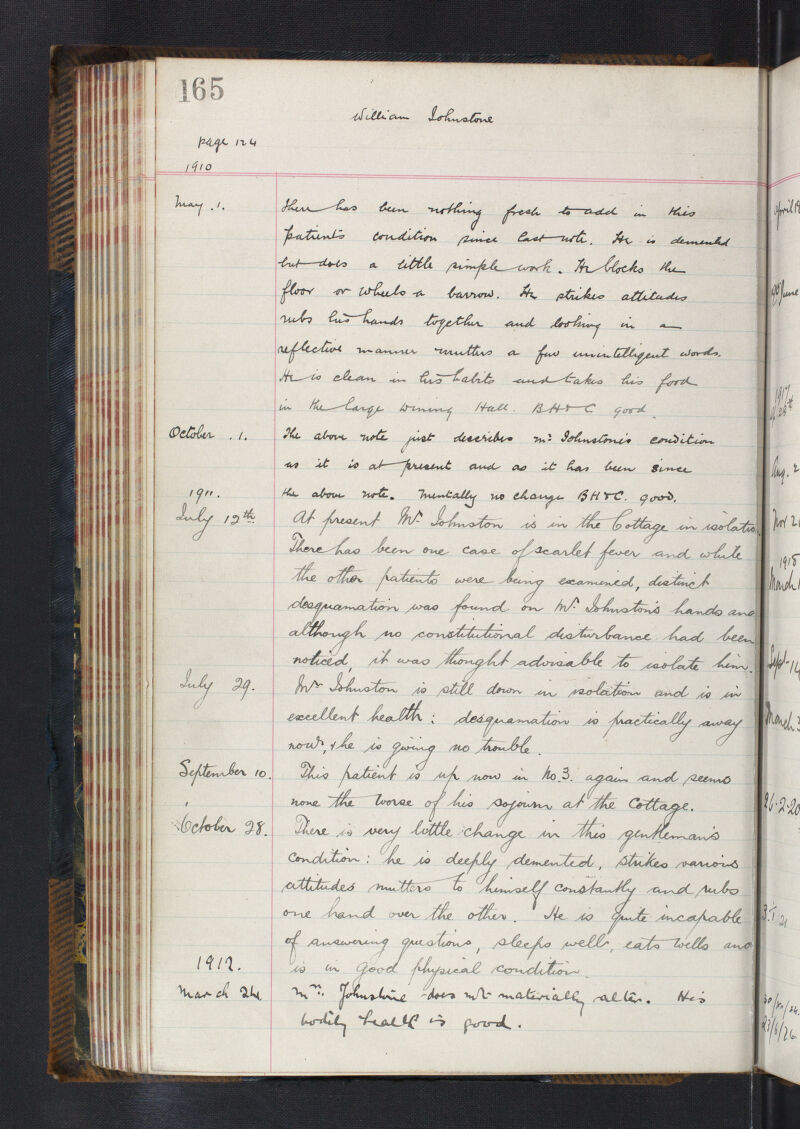 165
William Johnstone
page 124
1910
May . 1. There has been nothing fresh to add in this
patient's condition since last note. He is demented
but does a little simple work. He blocks the
floor or wheels a barrow. He strikes attitudes
rubs his hands together and looking in a
reflective manner mutters a few unintelligent words.
He is clean in his habits and takes his food
in the large Dining Hall. B H & C good.
October . 1. The above note just describes Mr Johnstone's condition
as it is at present and as it has been since
1911. the above note. Mentally no change B H & C. good.
July 12th. At present Mr Johnston is in the Cottage in isolation.
There has been one case of scarlet fever and while
the other patients were being examined, distinct
desquamation was found on Mr Johnston's hands and
although no constitutional disturbance had been
noticed, it was thought advisable to isolate him.
July 29. Mr Johnston is still down in isolation and is in
excellent health: desquamation is practically away
now, & he is giving no trouble.
September 10. This patient is up now in No. 3. again and seems
none the worse of his sojourn at the Cottage.
October 28. There is very little change in this gentleman's
condition: he is deeply demented, strikes various
attitudes mutters to himself constantly and rubs
one hand over the other. He is quite incapable
of answering questions, sleeps well, eats well and
1912. is in good physical condition.
March 24. Mr. Johnstone does not materially alter. His
bodily health is good.
April
June
1917
28th
Aug. 2
Nov 2
1918
March 1
Sept. 14
March 3
26.2.20
3.1.21
23/3/26